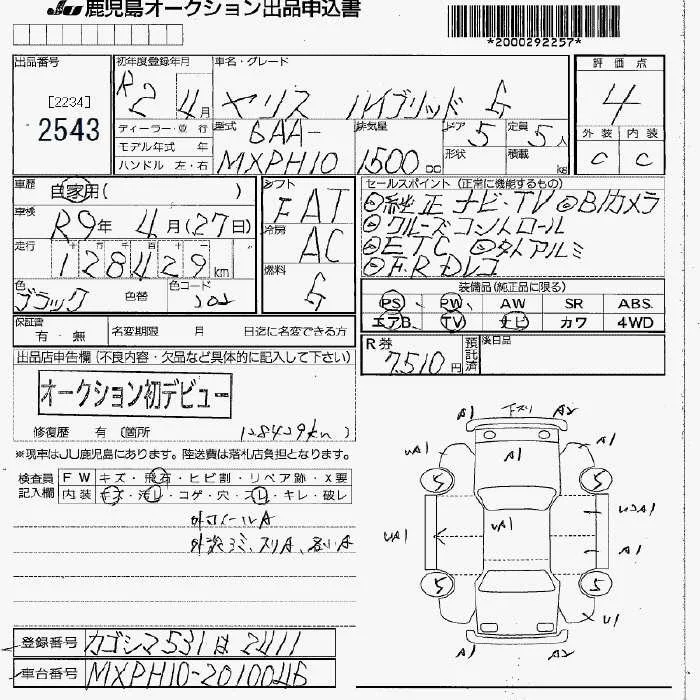 JU 鹿児島オークション出品申込書
*2000292257*
出品番号
[2234]
2543
初年度登録年月
R2年 4月
車名・グレード
ヤリス ハイブリッド G
評価点
4
外装 内装
C C
ディーラー・並行
モデル年式 年
ハンドル 左・右
型式
6AA-
MXPH10
排気量
1500 cc
ドア 5
形状
定員 5人
積載 kg
車歴
自家用( )
車検
R9年 4月(27日)
走行
128429km
色
ブラック
色替
色コード
202
シフト
FAT
冷房
AC
燃料
G
セールスポイント (正常に機能するもの)
純正ナビ・TV Bカメラ
クルーズコントロール
ETC 社外アルミ
F・Rドレコ
装備品(純正品に限る)
PS PW AW SR ABS
エアB TV ナビ カワ 4WD
保証書
有・無
名変期限 月 日迄に名変できる方
R券
7,510円
預託済
後日品
出品店申告欄(不良内容・欠品など具体的に記入して下さい)
オークション初デビュー
修復歴 有 〔箇所
128429km )
※現車はJU鹿児島にあります。陸送費は落札店負担となります。
検査員記入欄
FW キズ・飛石・ヒビ割・リペア跡・X要
内装 キズ・汚レ・コゲ・穴・スレ・キレ・破レ
外ホイールA
A1 下スリ A2
UA1 A1 A1
S S
UA1 UA1 U3A1
A1
S S
U1
A1 A2
登録番号 カゴシマ531は2411
車台番号 MXPH10-2010046